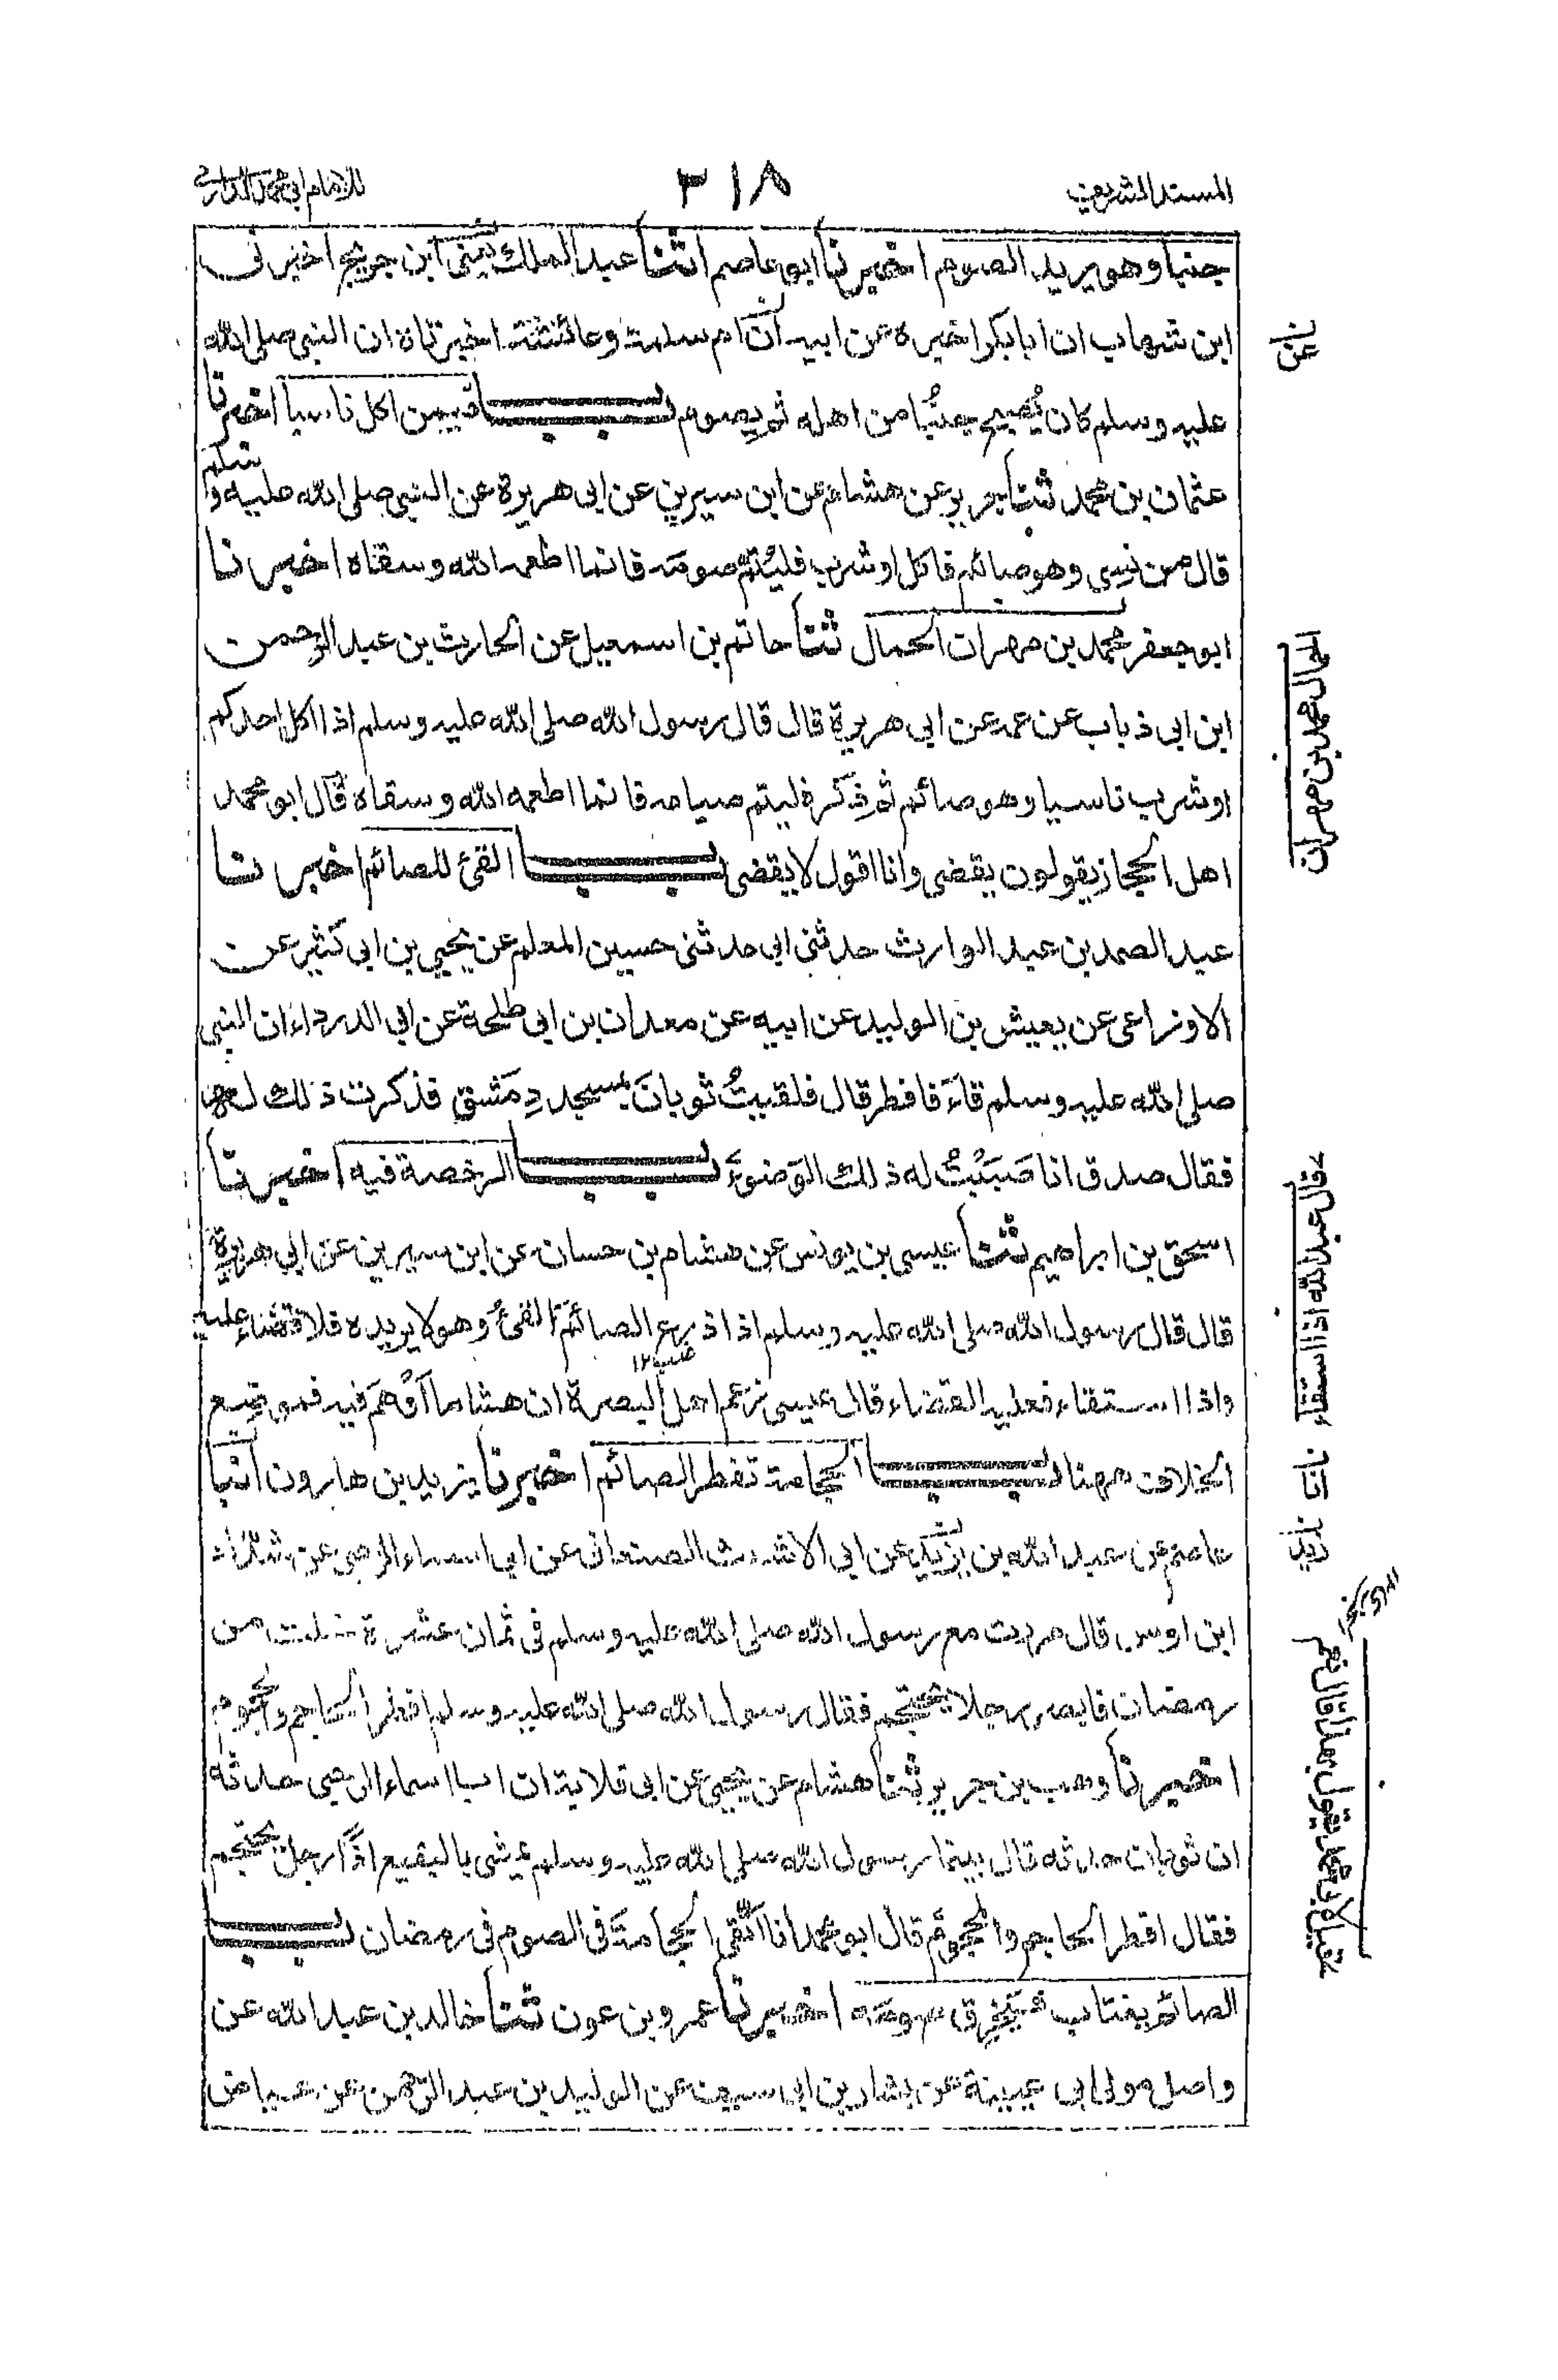 المسند الشريف
٣١٨
للامام ابي محمد الدارمي
جنبا وهو يريد الصوم اخبرنا ابو عاصم انثنا عبد الملك يعني ابن جريج اخبرنى
ابن شهاب ان ابا بكر اخبره عن ابيه ان ام سلمة وعائشة اخبرتاه ان النبى صلى الله
عليه وسلم كان يُصبح جنُبًا من اهله ثم يصوم باب فيمن اكل ناسيا اخبرنا
عثمان بن محمد ثنا جرير عن هشام عن ابن سيرين عن ابى هريرة عن النبى صلى الله عليه وسلم
قال من نسِى وهو صائم فاكل او شرب فليُتمّ صومَه فانما اطعمه الله وسقاه اخبرنا
ابو جعفر محمد بن مهران الحمال ثنا حاتم بن اسمعيل عن الحارث بن عبد الرحمن
ابن ابى ذباب عن عمه عن ابى هريرة قال قال رسول الله صلى الله عليه وسلم اذا اكل احدكم
او شرب ناسيا وهو صائم ثم ذكر فليتم صيامه فانما اطعمه الله وسقاه قال ابو محمد
اهل الحجاز يقولون يقضى وانا اقول لا يقضى باب القئ للصائم اخبرنا
عبد الصمد بن عبد الوارث حدثنى ابى حدثنى حسين المعلم عن يحيى بن ابى كثير عن
الاوزاعى عن يعيش بن الوليد عن ابيه عن معدان بن ابى طلحة عن ابى الدرداء ان النبى
صلى الله عليه وسلم قاءَ فافطر قال فلقيتُ ثوبانَ بمسجد دِمَشق فذكرت ذلك له
فقال صدق انا صَبَبْتُ له ذلك الوَضوءَ باب الرخصة فيه اخبرنا
اسحق بن ابراهيم ثنا عيسى بن يونس عن هشام بن حسان عن ابن سيرين عن ابى هريرة
قال قال رسول الله صلى الله عليه وسلم اذا ذرع الصائمَ القئُ وهو لا يريده فلا قضاء عليه
واذا استقاء فعليه القضاء قال عيسى زعم اهل البصرة ان هشاما اَوْهَمَ فيه فموضع
الخلاف ههنا باب الحجامة تفطر الصائم اخبرنا يزيد بن هارون انبا
عاصم عن عبد الله بن يزيد عن ابى الاشعث الصنعانى عن ابى اسماء الرحبى عن شدّاد
ابن اوس قال مررت مع رسول الله صلى الله عليه وسلم فى ثمان عشرة خلت من
رمضان فابصر رجلا يحتجم فقال رسول الله صلى الله عليه وسلم افطر الحاجم والمحجوم
اخبرنا وهب بن جرير ثنا هشام عن يحيى عن ابى قلابة ان ابا اسماء الرحبى حدثه
ان ثوبان حدثه قال بينما رسول الله صلى الله عليه وسلم يمشى بالبقيع اذا رجل يحتجم
فقال افطر الحاجم والمحجوم قال ابو محمد انا اَتَّقى الحجامةَ فى الصوم فى رمضان باب
الصائم يغتاب فيَتَخرّق صومَه اخبرنا عمرو بن عون ثنا خالد بن عبد الله عن
واصل مولى ابى عيينة عن بشار بن ابى سيف عن الوليد بن عبد الرحمن عن عياض
عن
محمد بن مهران
يزيد
قيل لابى محمد تقول بهذا قال نعم